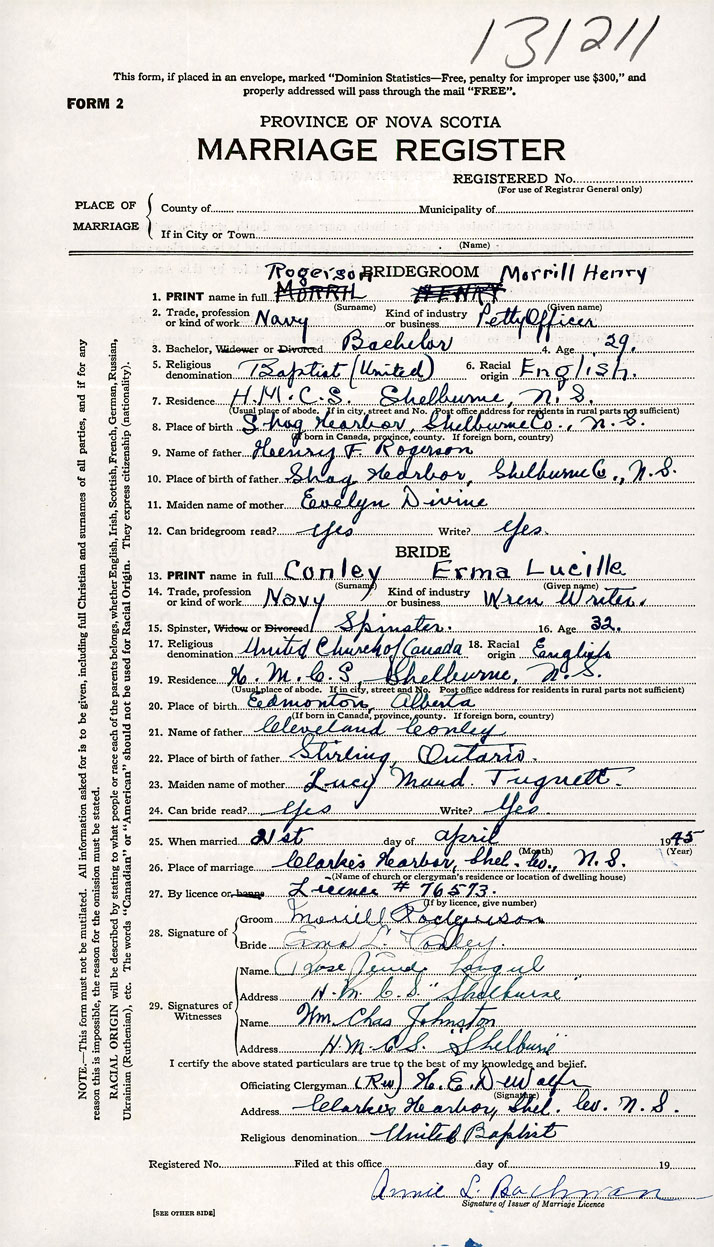 131211
This form, if placed in an envelope, marked "Dominion Statistics—Free, penalty for improper use $300," and
properly addressed will pass through the mail "FREE".
FORM 2
PROVINCE OF NOVA SCOTIA
MARRIAGE REGISTER
REGISTERED No.
(For use of Registrar General only)
PLACE OF MARRIAGE
County of Municipality of
If in City or Town
(Name)
BRIDEGROOM
Rogerson Morrill Henry
1. PRINT name in full MORRIL HENRY
(Surname) (Given name)
2. Trade, profession or kind of work Navy Kind of industry or business Petty Officer
3. Bachelor, Widower or Divorced Bachelor 4. Age 29.
5. Religious denomination Baptist (United) 6. Racial origin English.
7. Residence H.M.C.S. Shelburne, N.S.
(Usual place of abode. If in city, street and No. Post office address for residents in rural parts not sufficient)
8. Place of birth Shag Harbor, Shelburne Co., N.S.
(If born in Canada, province, county. If foreign born, country)
9. Name of father Henry F. Rogerson
10. Place of birth of father Shag Harbor, Shelburne C., N.S.
11. Maiden name of mother Evelyn Divine
12. Can bridegroom read? Yes Write? Yes.
BRIDE
13. PRINT name in full Conley Erma Lucille
(Surname) (Given name)
14. Trade, profession or kind of work Navy Kind of industry or business Wren Writer.
15. Spinster, Widow or Divorced Spinster. 16. Age 32.
17. Religious denomination United Church of Canada 18. Racial origin English
19. Residence H.M.C.S. Shelburne, N.S.
(Usual place of abode. If in city, street and No. Post office address for residents in rural parts not sufficient)
20. Place of birth Edmonton, Alberta
(If born in Canada, province, county. If foreign born, country)
21. Name of father Cleveland Conley
22. Place of birth of father Stirling, Ontario.
23. Maiden name of mother Lucy Maud.
24. Can bride read? Yes Write? Yes.
25. When married 21st day of April 1945
(Month) (Year)
26. Place of marriage Clarke's Harbor, Shel. Co., N.S.
(Name of church or clergyman's residence or location of dwelling house)
27. By licence or banns Licence # 76573.
(If by licence, give number)
28. Signature of Groom Morrill Rodgerson
Bride Erma L. Conley.
29. Signatures of Witnesses
Name Rose
Address H.M.C.S. "Shelburne"
Name Wm Chas Johnston
Address H.M.C.S. "Shelburne"
I certify the above stated particulars are true to the best of my knowledge and belief.
Officiating Clergyman (Rev) H. E. DeWolfe
(Signature)
Address Clarke's Harbor, Shel. Co. N.S.
Religious denomination United Baptist
Registered No. Filed at this office day of 19
Annie L. Bachman
Signature of Issuer of Marriage Licence
[SEE OTHER SIDE]
NOTE.—This form must not be mutilated. All information asked for is to be given, including full Christian and surnames of all parties, and if for any
reason this is impossible, the reason for the omission must be stated.
RACIAL ORIGIN will be described by stating to what people or race each of the parents belongs, whether English, Irish, Scottish, French, German, Russian,
Ukrainian (Ruthenian), etc. The words "Canadian" or "American" should not be used for Racial Origin. They express citizenship (nationality).